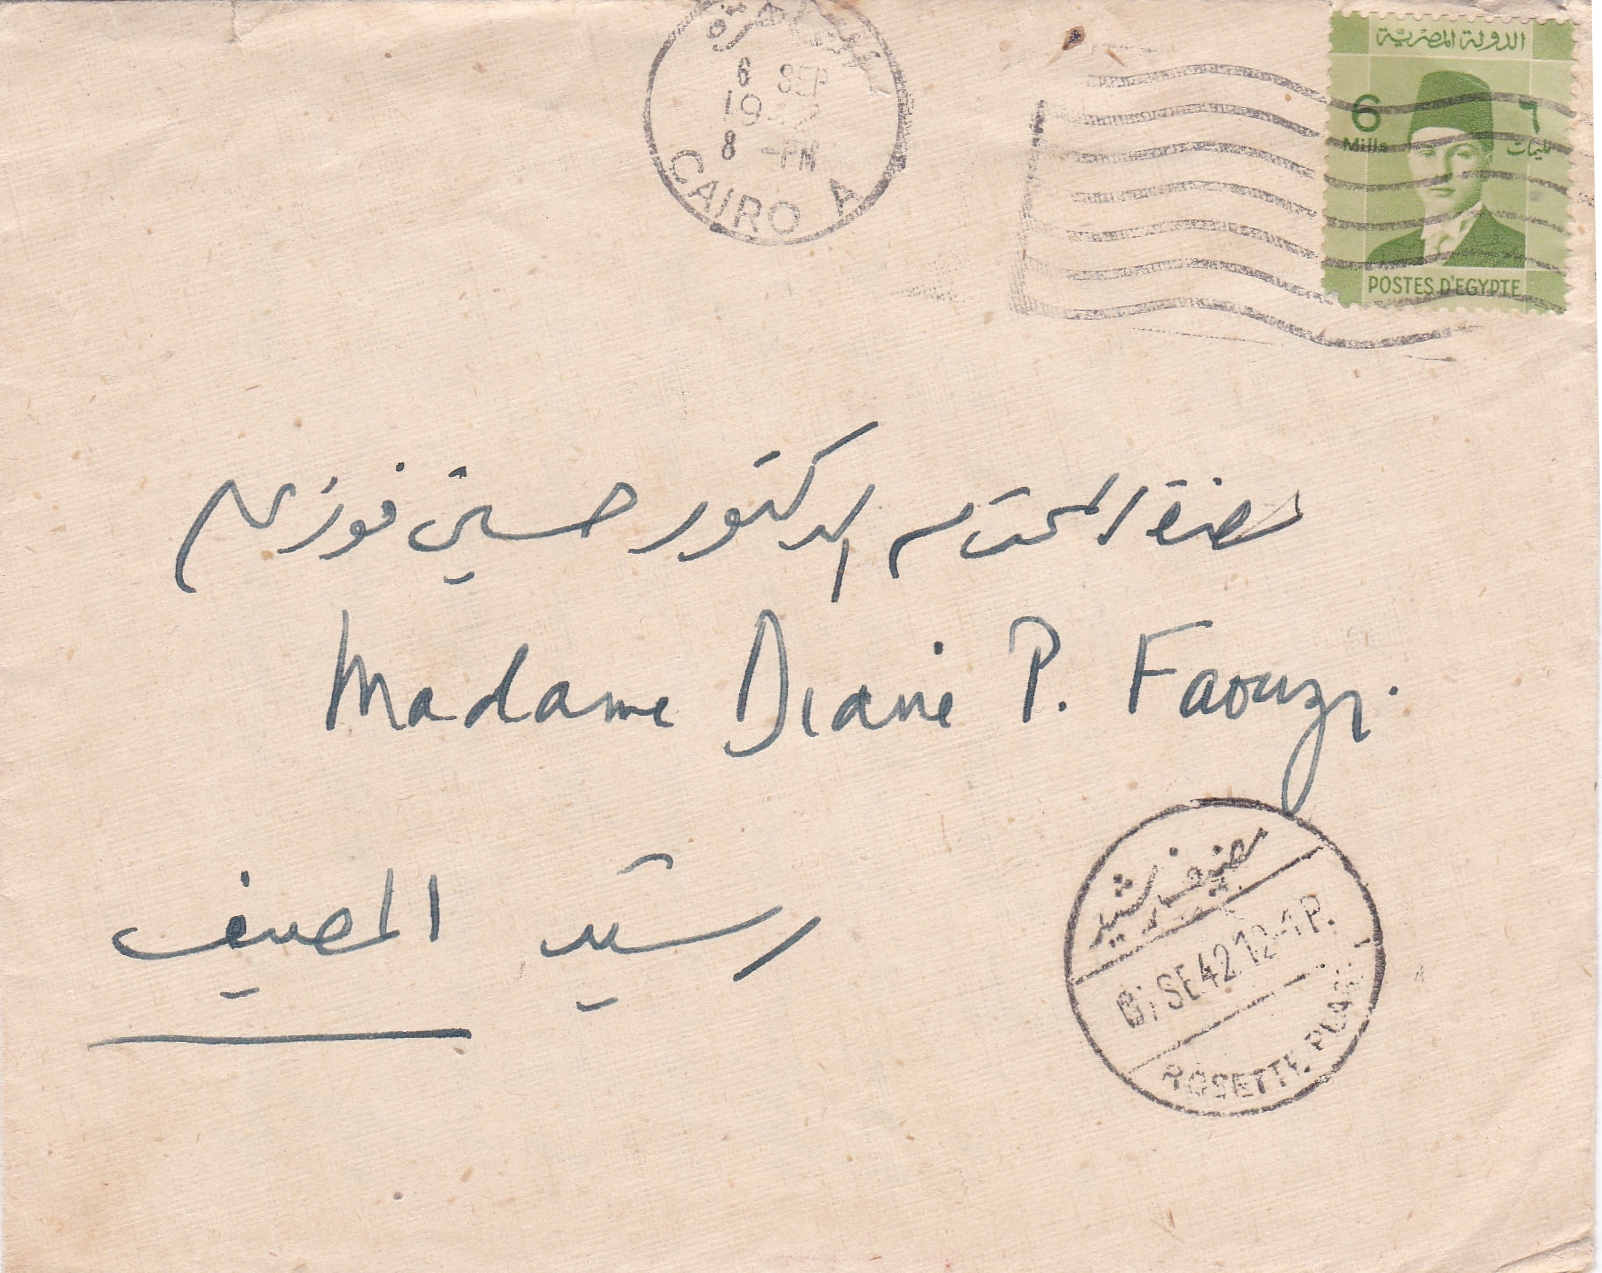 القاهرة
6 SEP
19 2
8 -PM
CAIRO A
الدولة المصرية
6 ٦
Mills مليمات
POSTES D'EGYPTE
حضرة المحترم الدكتور حسين فوزى
Madame Diane P. Faouzi.
رشيد المصيف
مصيف رشيد
SE 42 12-1 P.
ROSETTE PLAGE